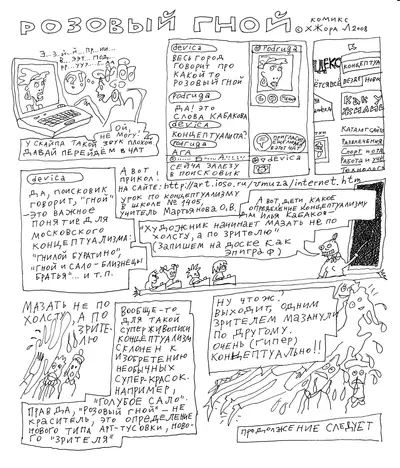 РОЗОВЫЙ ГНОЙ
КОМИКС
© ХЖОРА Л 2008
Э..Э..Й..Й...ПР...ИИ...
В...ЭЭТ...ПОД..
РР...УУУ...Г..АА
ОЙ,
НЕ МОГУ!
У СКАЙПА ТАКОЙ ЗВУК ПЛОХОЙ,
ДАВАЙ ПЕРЕЙДЁМ В ЧАТ
devica
ВЕСЬ ГОРОД
ГОВОРИТ ПРО
КАКОЙ ТО
РОЗОВЫЙ ГНОЙ
Podruga
ДА! ЭТО
СЛОВА КАБАКОВА
devica
КОНЦЕПТУАЛИСТА?
Podruga
АГА
devica
СЕЙЧА ЗАЛЕЗУ
В ПОИСКОВИК
Podruga
devica
КОНЦЕПТУА
ВЕЗДЕ
КАК У
КАТАЛОГ САЙТО
РАЗВЛЕЧЕНИЯ
СПОРТ
РАБОТА И
devica
ДА, ПОИСКОВИК
ГОВОРИТ, "ГНОЙ"-
ЭТО ВАЖНОЕ
ПОНЯТИЕ ДЛЯ
МОСКОВСКОГО
КОНЦЕПТУАЛИЗМА:
"ГНИЛОЙ БУРАТИНО",
"ГНОЙ И САЛО - БЛИЗНЕЦЫ
БРАТЬЯ"... И Т. П.
А ВОТ
ПРИКОЛ!
НА САЙТЕ: http://art.ioso.ru/vmuza/internet.htm
УРОК ПО КОНЦЕПТУАЛИЗМУ
В ШКОЛЕ № 1405,
УЧИТЕЛЬ МАРТЬЯНОВА О.В.
А ВОТ, ДЕТИ, КАКОЕ
ОПРЕДЕЛЕНИЕ КОНЦЕПТУАЛИЗМУ
ДАЛ ИЛЬЯ КАБАКОВ-
"ХУДОЖНИК НАЧИНАЕТ МАЗАТЬ НЕ ПО
ХОЛСТУ, А ПО ЗРИТЕЛЮ"
(ЗАПИШЕМ НА ДОСКЕ КАК
ЭПИГРАФ)
МАЗАТЬ НЕ ПО
ХОЛСТУ,
А ПО
ЗРИТЕ-
ЛЮ
ВООБЩЕ-ТО,
ДЛЯ ТАКОЙ
СУПЕРЖИВОПИСИ
КОНЦЕПТУАЛИЗМ
СКЛОНЕН К
ИЗОБРЕТЕНИЮ
НЕОБЫЧНЫХ
СУПЕР-КРАСОК.
НАПРИМЕР,
"ГОЛУБОЕ САЛО".
ПРАВДА, "РОЗОВЫЙ ГНОЙ" - НЕ
КРАСИТЕЛЬ, ЭТО ОПРЕДЕЛЕНИЕ
НОВОГО ТИПА АРТ-ТУСОВКИ, НОВО-
ГО "ЗРИТЕЛЯ"
НУ ЧТО Ж,
ВЫХОДИТ, ОДНИМ
ЗРИТЕЛЕМ МАЗАНУЛИ
ПО ДРУГОМУ.
ОЧЕНЬ (ГИПЕР)
КОНЦЕПТУАЛЬНО!!
ПРОДОЛЖЕНИЕ СЛЕДУЕТ